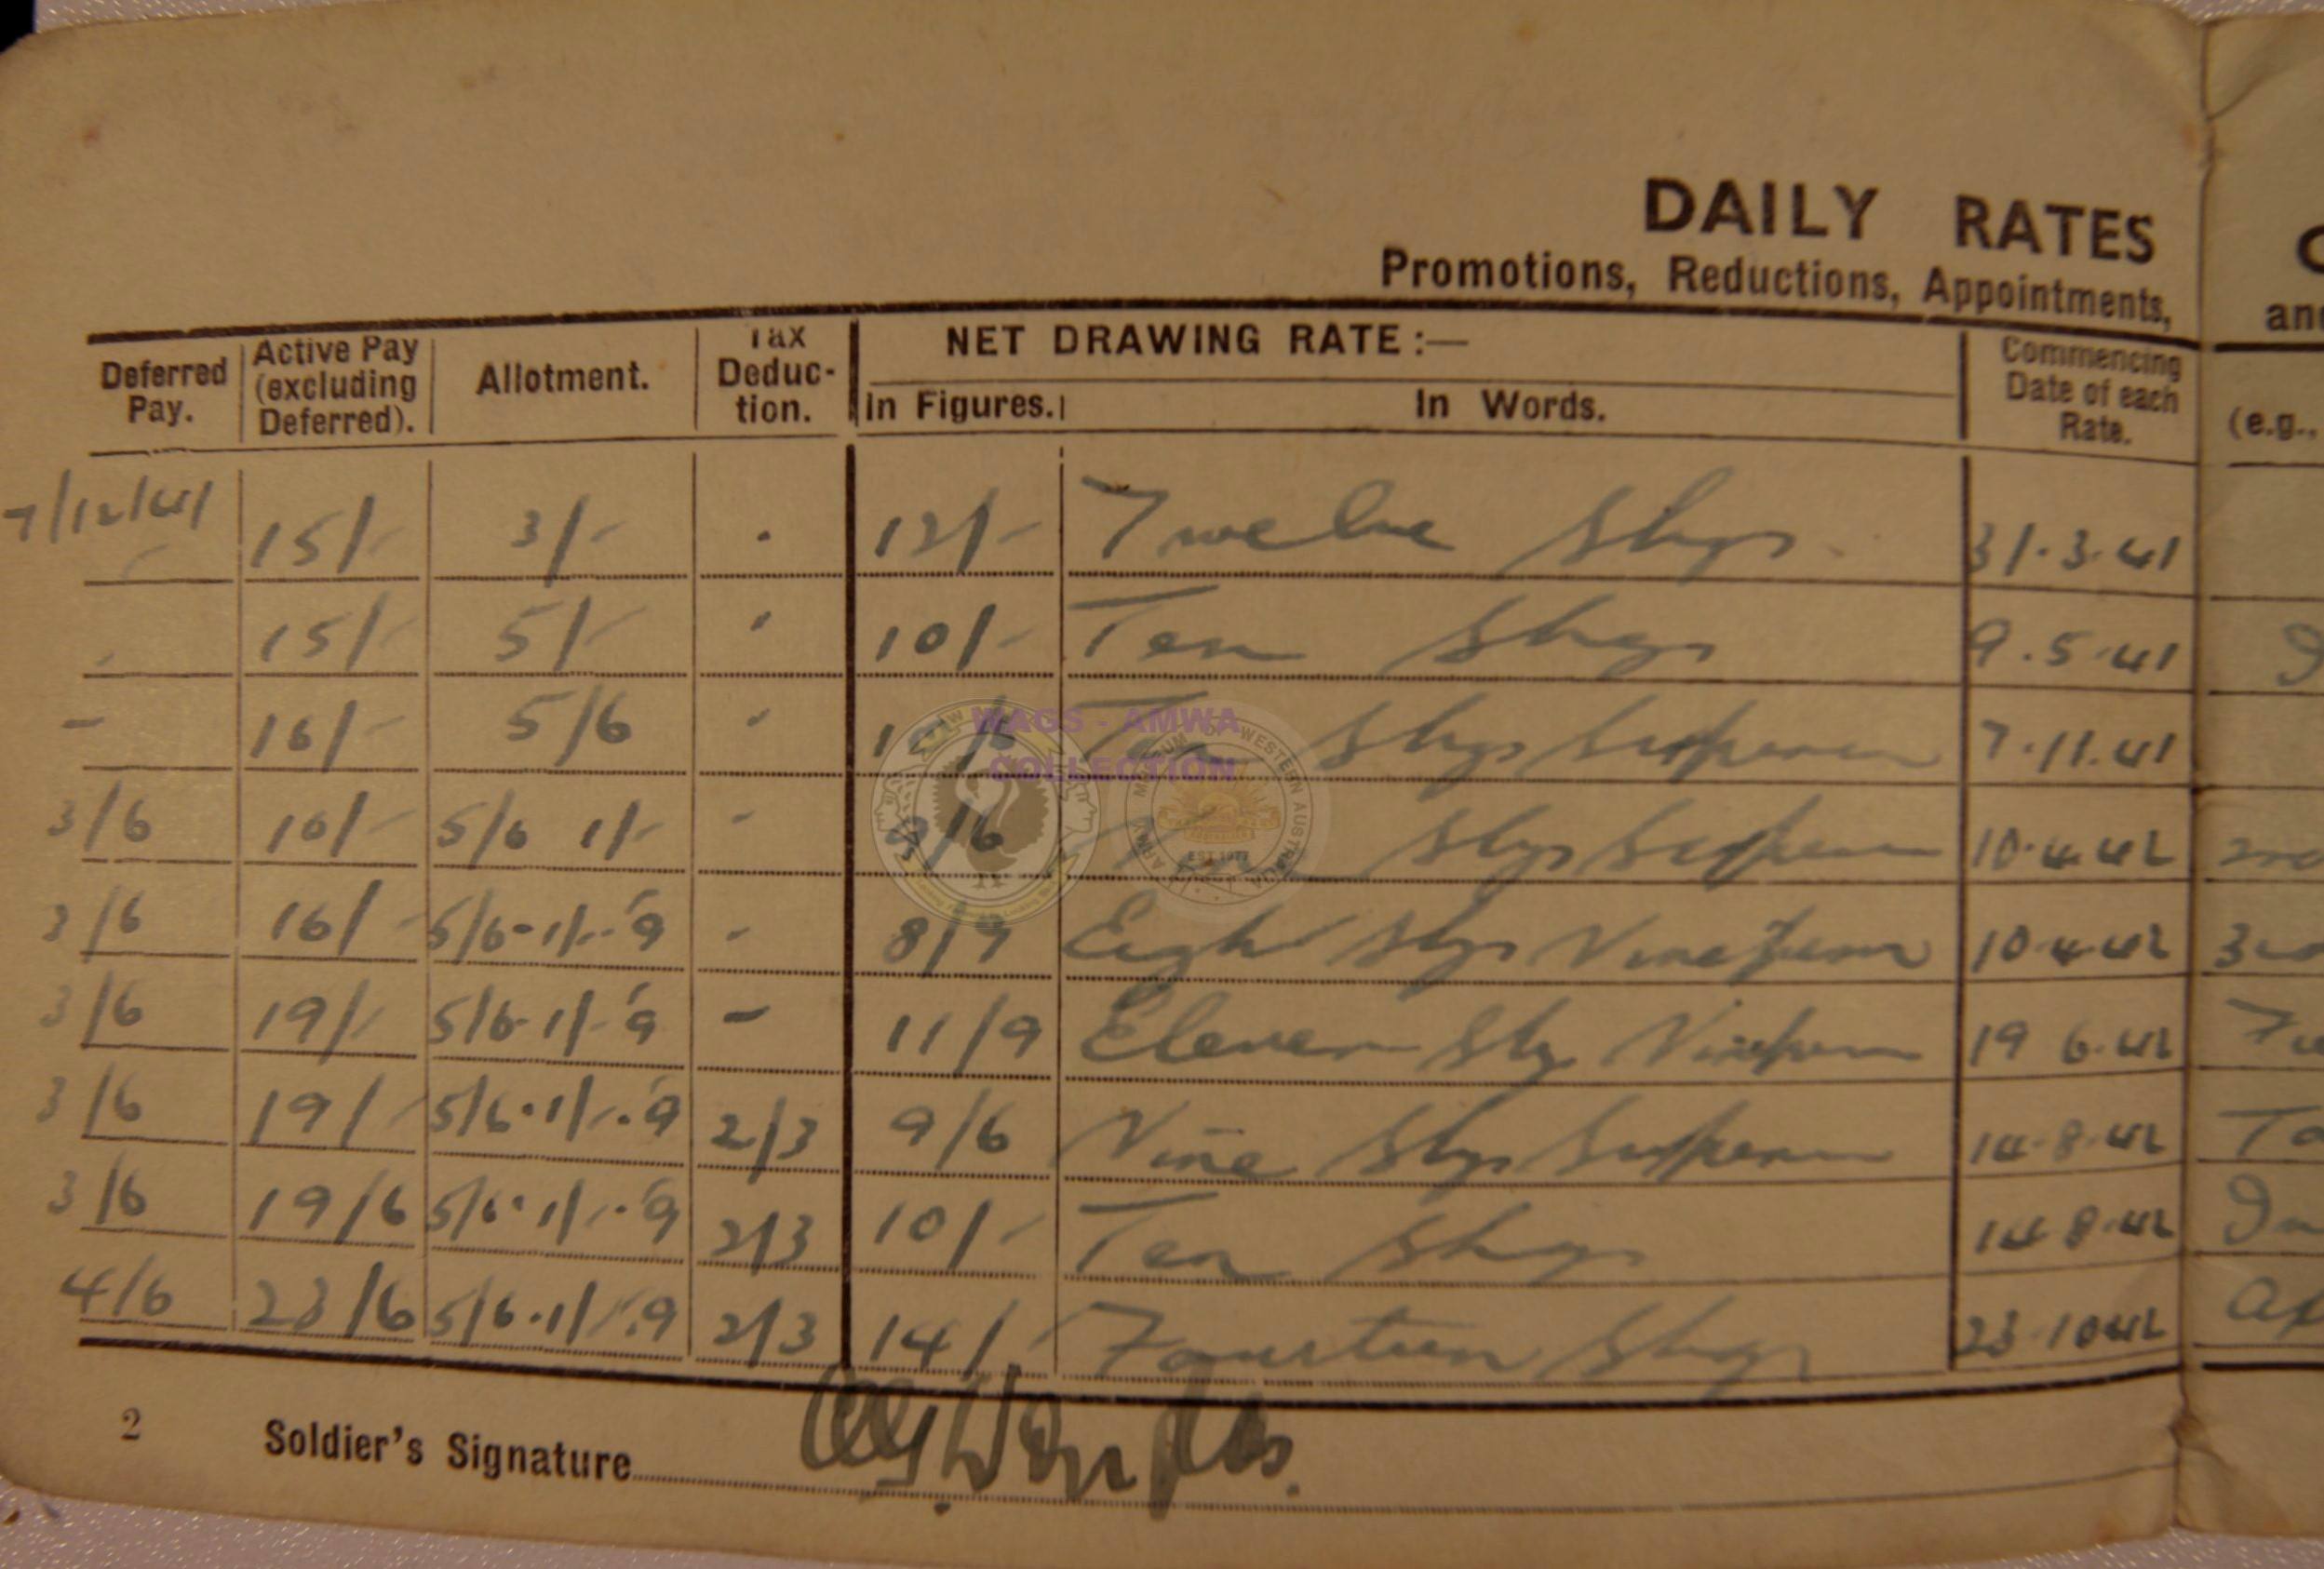 DAILY RATES
Promotions, Reductions, Appointments,
Deferred Pay. Active Pay (excluding Deferred). Allotment. Tax Deduc-tion. NET DRAWING RATE:— Commencing Date of each Rate.
In Figures. In Words. (e.g.,
7/12/41 15/- 3/- 12/- Twelve Shgs 31.3.41
15/- 5/- 10/- Ten Shgs 9.5.41
- 16/- 5/6 10/6 Ten Shgs Sixpence 7.11.41
3/6 16/- 5/6 1/- - 9/6 Shgs Sixpence 10.4.42
3/6 16/- 5/6-1/-.9 - 8/9 Eight Shgs Ninepence 10.4.42
3/6 19/- 5/6-1/-9 - 11/9 Eleven Shgs Ninepence 19 6.42
3/6 19/- 5/6.1/-.9 2/3 9/6 Nine Shgs Sixpence 14.8.42
3/6 19/6 5/6.1/-.9 2/3 10/- Ten Shgs 14 8.42
4/6 23/6 5/6.1/-.9 2/3 14/- Fourteen Shgs 23.10.42
2 Soldier's Signature
WAGS - AMWA
COLLECTION
ARMY MUSEUM OF WESTERN AUSTRALIA
EST 1977